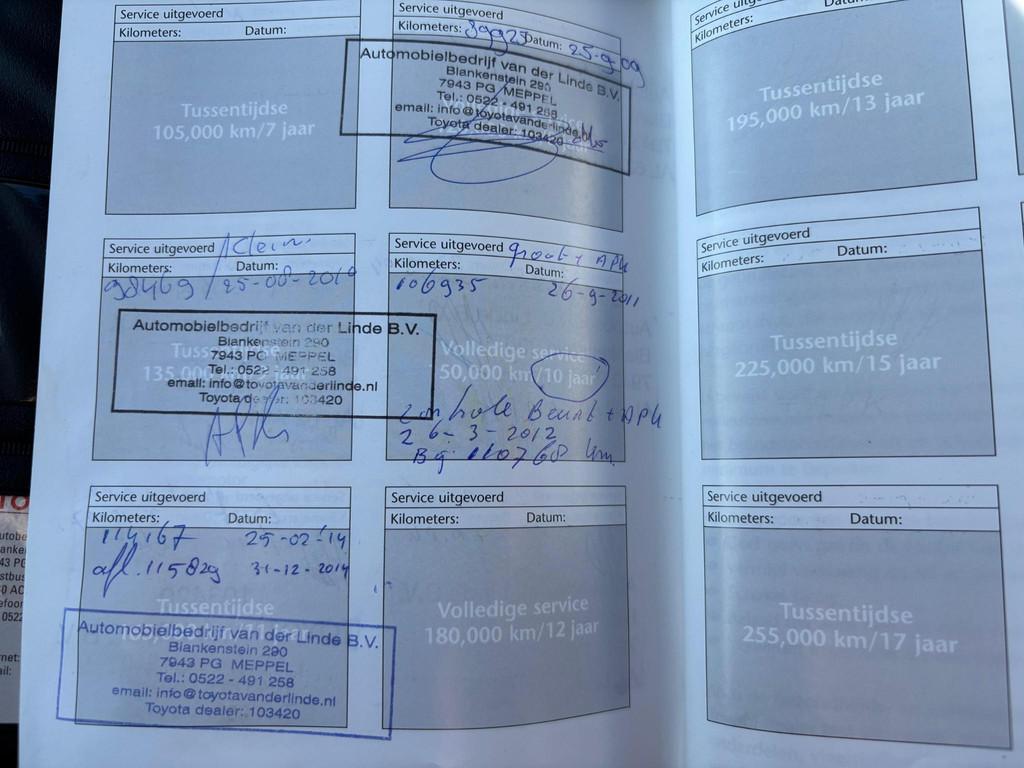 Service uitgevoerd
Kilometers: Datum:
Tussentijdse
105,000 km/7 jaar
Service uitgevoerd
Kilometers: 89925 Datum: 25-9-09
Automobielbedrijf van der Linde B.V.
Blankenstein 290
7943 PG MEPPEL
Tel.: 0522 - 491 258
email: info@toyotavanderlinde.nl
Toyota dealer: 103420
Service uitgevoerd
Kilometers: Datum:
Tussentijdse
195,000 km/13 jaar
Service uitgevoerd Klein
Kilometers: Datum:
98469 / 25-08-2010
Automobielbedrijf van der Linde B.V.
Blankenstein 290
7943 PG MEPPEL
Tel.: 0522 - 491 258
email: info@toyotavanderlinde.nl
Toyota dealer: 103420
Tussentijdse
135,000
APK
Service uitgevoerd groot + APK
Kilometers: Datum:
106935 26-9-2011
Volledige service
150,000 km/10 jaar
Controle Beurt + APK
26-3-2012
Bij 110768 km.
Service uitgevoerd
Kilometers: Datum:
Tussentijdse
225,000 km/15 jaar
Service uitgevoerd
Kilometers: Datum:
114167 25-02-14
afl. 115829 31-12-2014
Tussentijdse
Automobielbedrijf van der Linde B.V.
Blankenstein 290
7943 PG MEPPEL
Tel.: 0522 - 491 258
email: info@toyotavanderlinde.nl
Toyota dealer: 103420
Service uitgevoerd
Kilometers: Datum:
Volledige service
180,000 km/12 jaar
Service uitgevoerd
Kilometers: Datum:
Tussentijdse
255,000 km/17 jaar